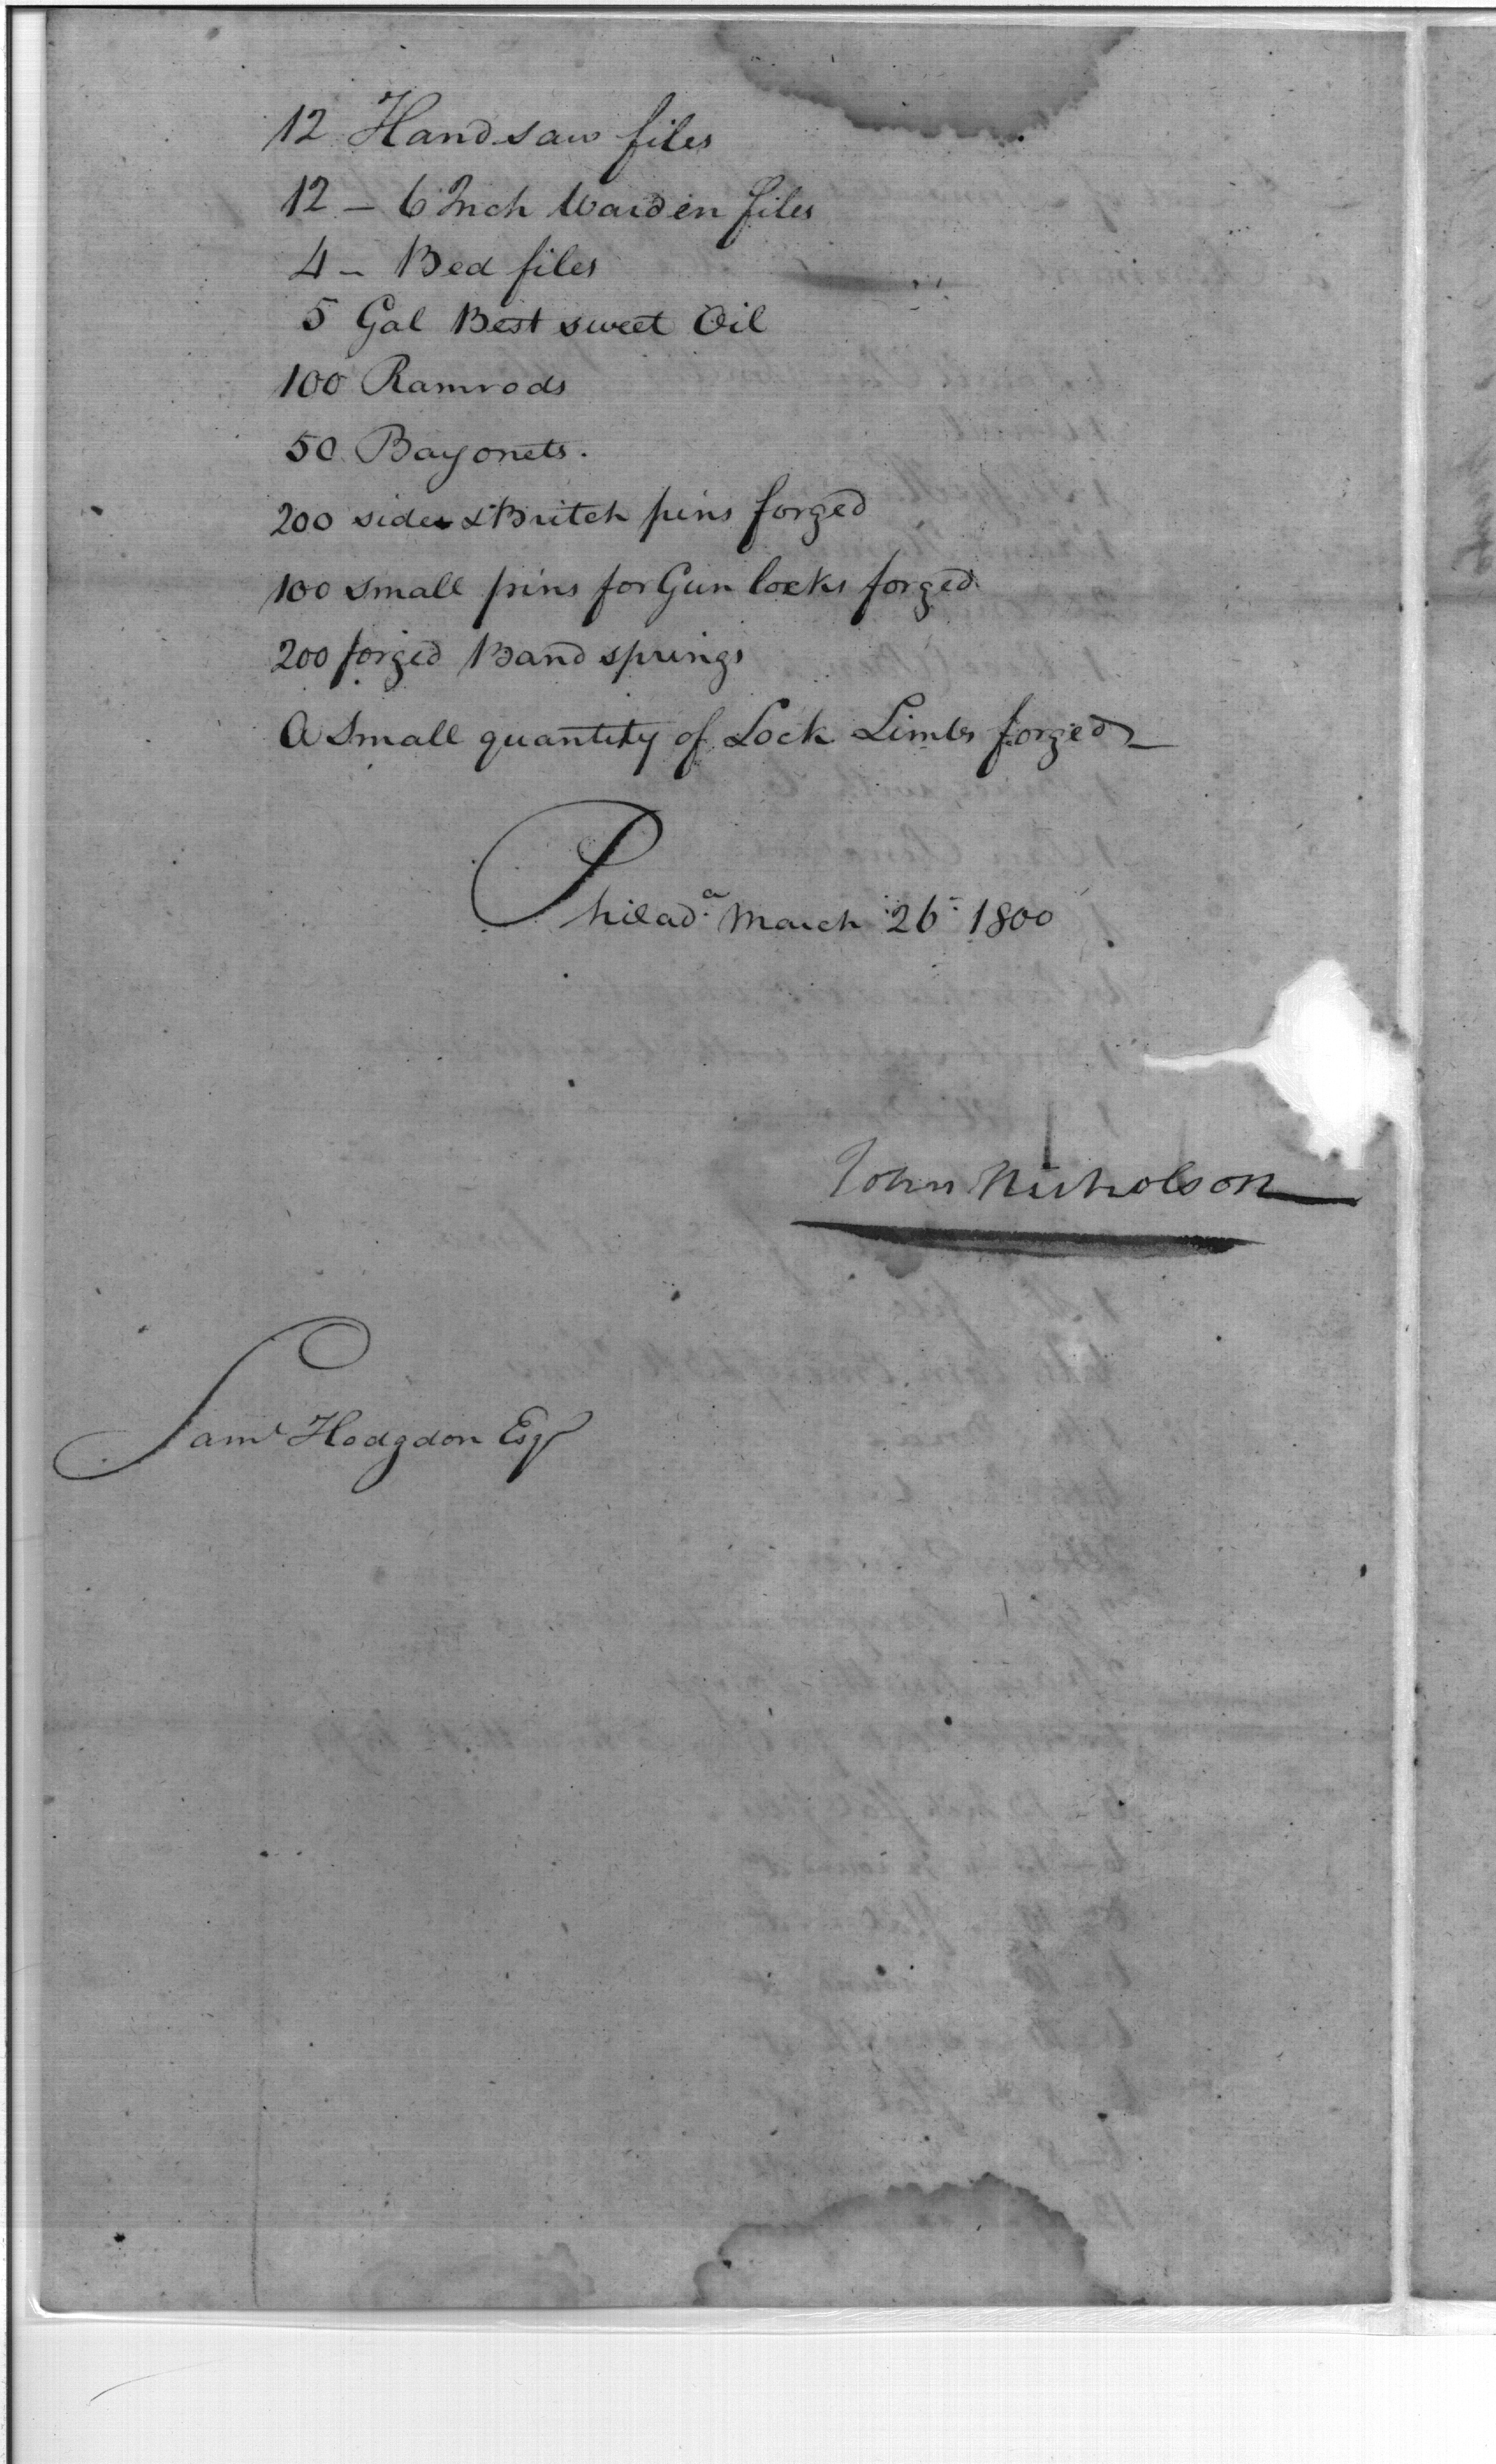 12 Handsaw files
12 - 6 Inch Warden files
4 - Bed files
5 Gal Best sweet Oil
100 Ramrods
50 Bayonets.
200 side & Britch pins forged
100 small pins for Gun locks forged
200 forged Band springs
A Small quantity of Lock Limbs forged
Philad.a March 26 1800
John Nicholson
Saml Hodgdon Esqr